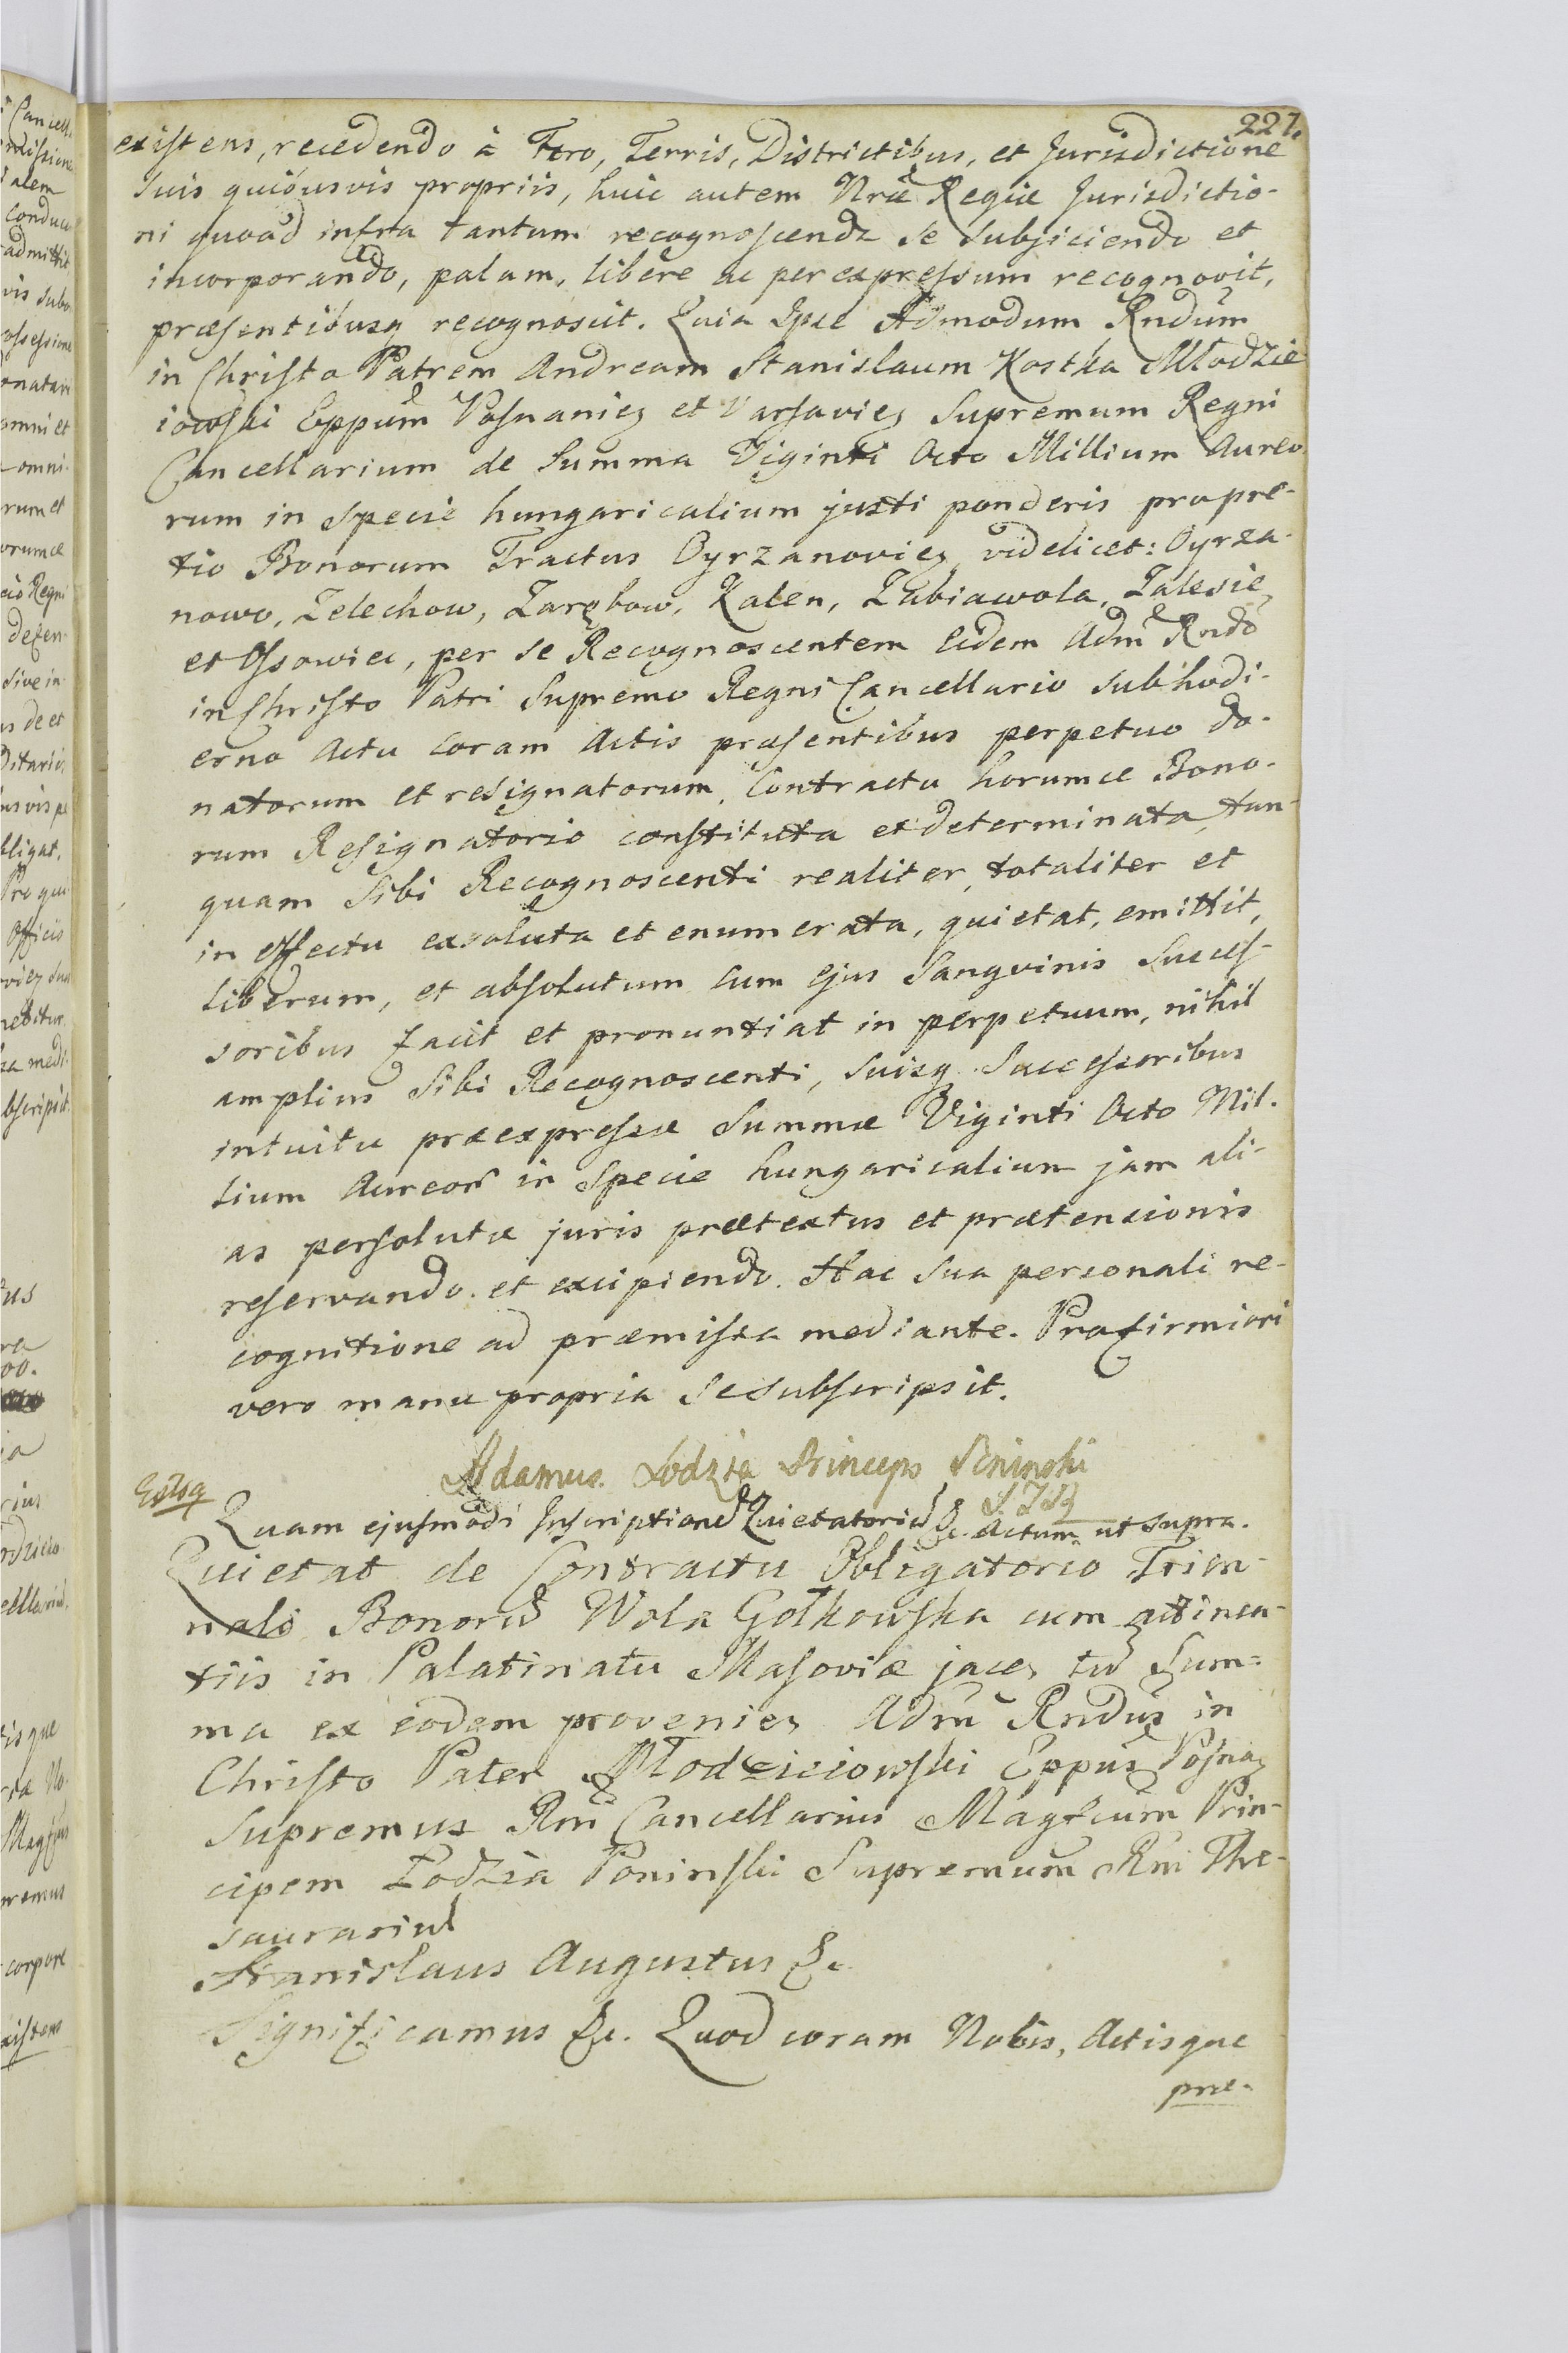 227.
existens, recedendo à Foro, Terris, Districtibus, et Jurisdictione
suis quibusvis propriis, huic autem Nræ Regiæ Jurisdictio-
ni quoad infra tantum recognoscenda se subjiciendo et
incorporando, palam, libere ac per expressum recognovit,
præsentibusq recognoscit. Quia Ipse Admodum Rndum
in Christo Patrem Andream Stanislaum Kostka Młodzie
iowski Eppum Posnaniez et Varsaviez Supremum Regni
Cancellarium de Summa Viginti Octo Millium Aureo
rum in Specie hungaricalium justi ponderis pro pre-
tio Bonorum Tractus Oyrzanoviez videlicet: Oyrza-
nowo, Zelechow, Zarębow, Kalen, Zabiawola, Zalesie,
et Ossowiec, per se Recognoscentem eidem Adm Rndo
in Christo Patri Supremo Regni Cancellario sub hodi-
erno Actu coram Actis præsentibus perpetuo do-
natorum et resignatorum, Contractu horumce Bono-
rum Resignatorio constituta et determinata, tan-
quam Sibi Recognoscenti realiter, totaliter et
in effectu exsoluta et enumerata, quietat, emittit,
liberum, et absolutum cum ejus Sangvinis Succes-
soribus facit et pronuntiat in perpetuum, nihil
amplius Sibi Recognoscenti, suisq Successoribus
intuitu præexpressæ Summæ Viginti Octo Mil-
lium Aureor in Specie hungaricalium jam ali-
as persolutæ juris prætextus et prætensionis
reservando et excipiendo. Hac sua personali re-
cognitione ad præmissa mediante. Pro firmiori
vero manu propria se subscripsit.
Adamus Lodzia Princeps Poninski
Estq
Quam ejusmodi Inscriptione Quietatoria &c. Actum ut supra.
Quietat de Contractu Obligatorio Trien-
nali Bonoru Wola Gołkowska cum attinen-
tiis in Palatinatu Masoviæ jacez tu Sum=
ma ex eodem proveniez Adm Rndus in
Christo Pater Młodzieiowski Eppus Posnaz
Supremus Rni Cancellarius Magfcum Prin-
cipem Łodzia Poninski Supremum Rni The-
saurariu
Stanislaus Augustus &c.
Significamus &c. Quod coram Nobis, Actisque
præ-